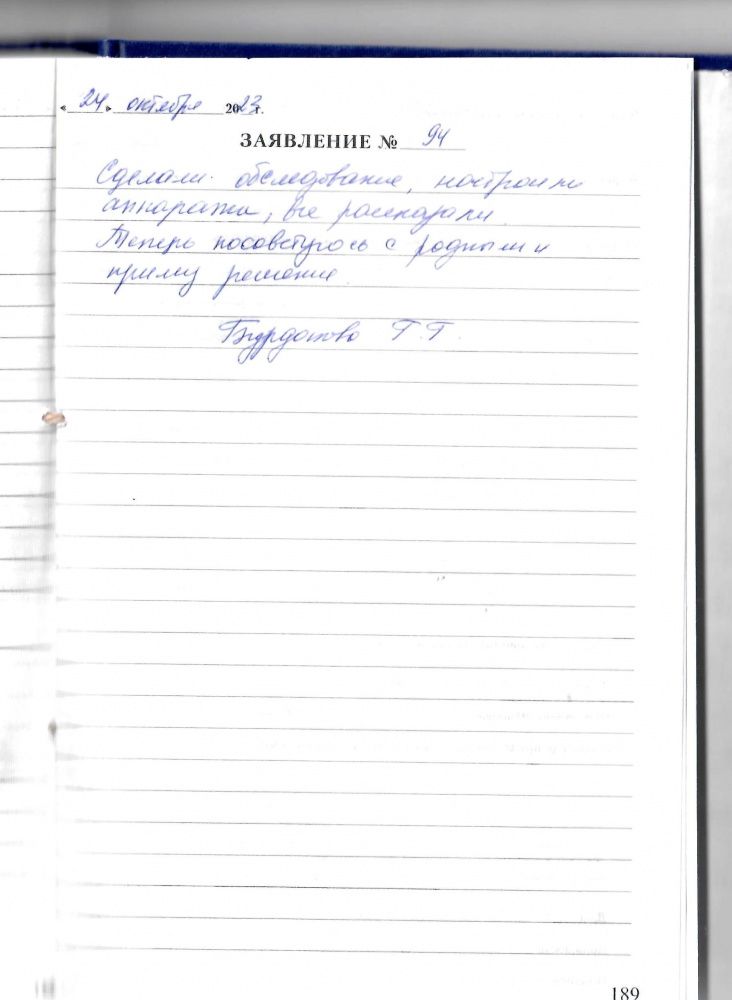 « 24 » октября 2023 г.
ЗАЯВЛЕНИЕ № 94
Сделали обследование, настроили
аппараты, все рассказали.
Теперь посоветуюсь с родными и
приму решение.
Г. Г.
189